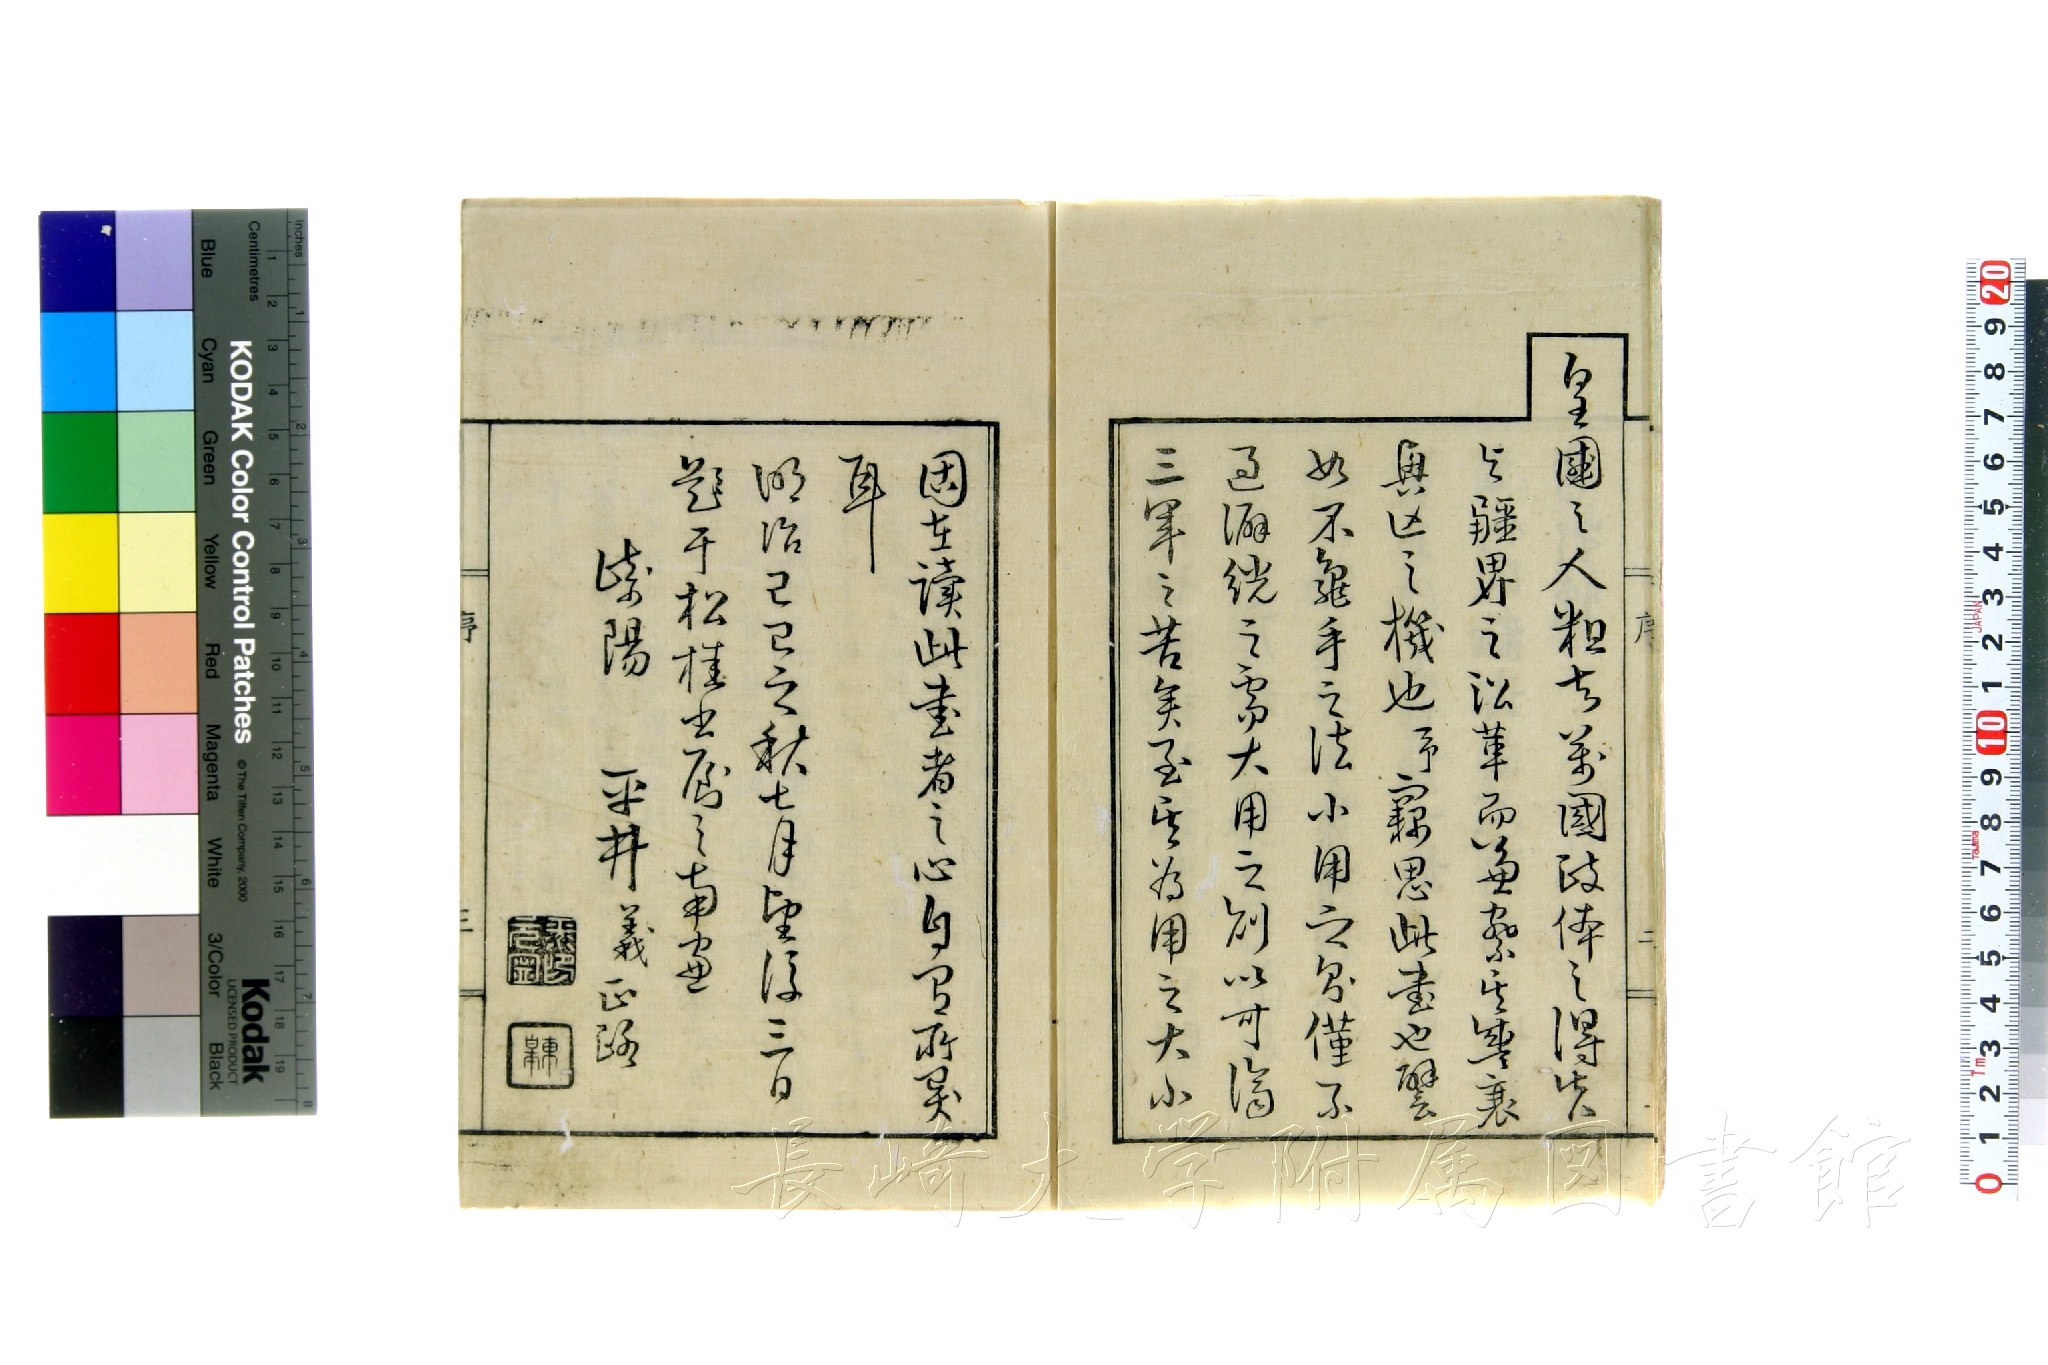 皇國之人粗知萬國政体之得失
與疆界之沿革而并察其盛衰
興亡之機也予竊思此書也譬
如不龜手之法小用之僅不
過澼絖之需大用之則以可濟
三軍之苦矣至其為用之大小
固在讀此書者之心自有所異
耳
明治己巳之秋七月望後三日
題于松桂書屋之南窓
崎陽 平井義正
序 二
序 三
KODAK Color Control Patches
© The Tiffen Company, 2000
Kodak
LICENSED PRODUCT
Inches
Centimetres
Blue Cyan Green Yellow Red Magenta White 3/Color Black
長崎大学附属図書館